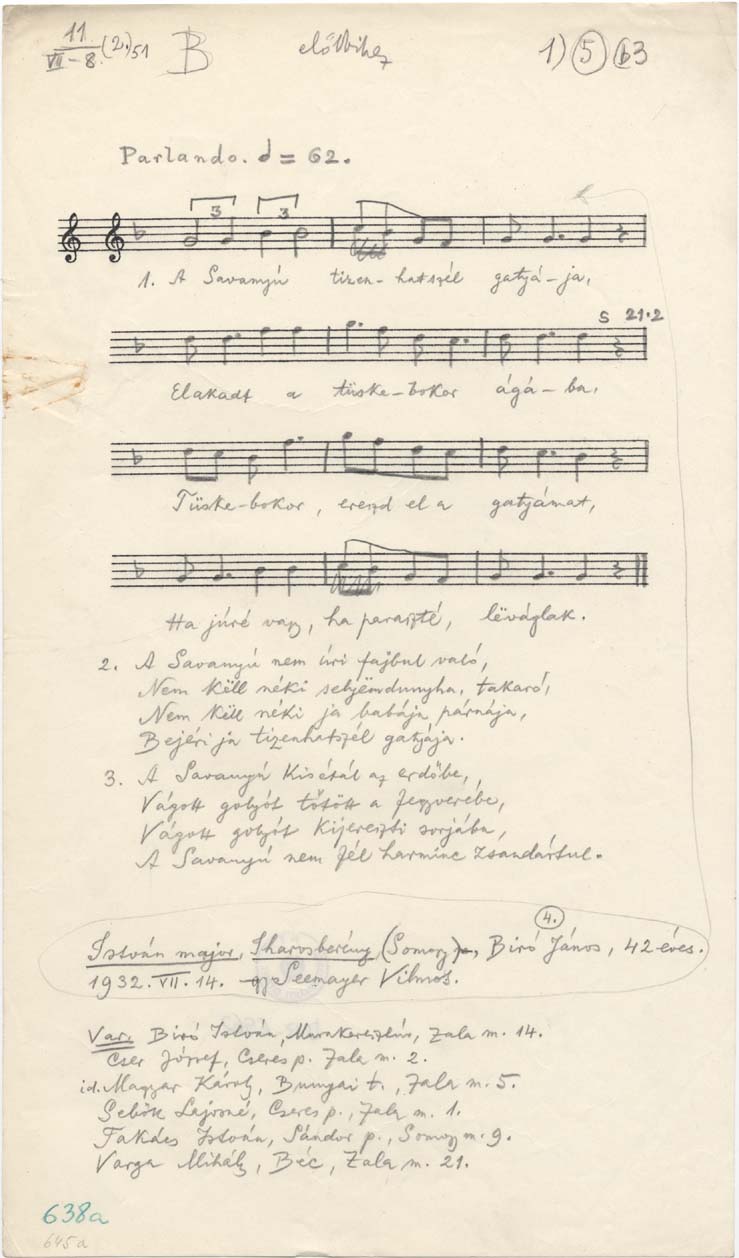 11
VII-8. (2.) 51
B
előbbihez
1) 5 63
Parlando. = 62.
3 3
1. A Savanyú tizen-hatszél gatyá-ja,
S 21.2
Elakadt a tüske-bokor ágá-ba,
Tüske-bokor, ereszd el a gatyámat,
Ha júré vagy, ha paraszté, lëváglak.
2. A Savanyú nem úri fajbul való,
Nem këll néki selyëmdunyha, takaró,
Nem këll néki ja babája párnája,
Bejéri ja tizenhatszél gatyája.
3. A Savanyú kisétál az erdőbe,
Vágott golyót tőtött a fegyverébe,
Vágott golyót kijereszti sorjába,
A Savanyú nem fél harminc zsandártul.
4.
István major, Iharosberény (Somogy), Biró János, 42 éves.
1932. VII. 14. gy Seemayer Vilmos.
Var. Biró István, Murakeresztúr, Zala m. 14.
Cser József, Cseres p. Zala m. 2.
id. Magyar Károly, Bunyai t., Zala m. 5.
Sebők Lajosné, Cseres p., Zala m. 1.
Takács István, Sándor p., Somogy m. 9.
Varga Mihály, Béc, Zala m. 21.
638a
645a